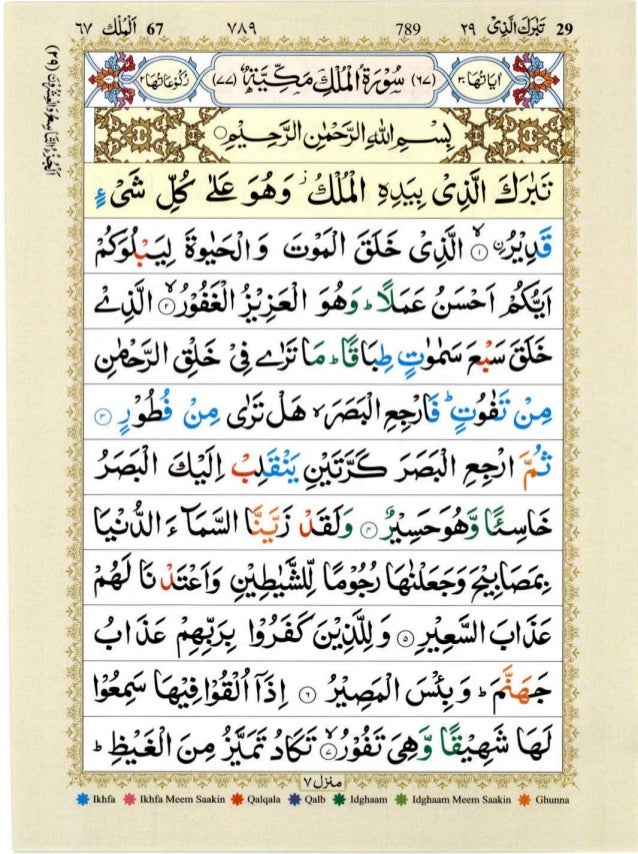 29 تَبٰرَكَ الَّذِىْ ٢٩ 789 ٧٨٩ 67 اَلْمُلْك ٦٧
اٰيَاتُهَا ٣٠ (٦٧) سُوْرَةُ الْمُلْكِ مَكِّيَّةٌ (٧٧) رُكُوْعَاتُهَا ٢
بِسْمِ اللهِ الرَّحْمٰنِ الرَّحِيْمِ
تَبٰرَكَ الَّذِىْ بِيَدِهِ الْمُلْكُ ز وَهُوَ عَلٰى كُلِّ شَىْءٍ
قَدِيْرُ ۨ ۙ ١ الَّذِىْ خَلَقَ الْمَوْتَ وَالْحَيٰوةَ لِيَبْلُوَكُمْ
اَيُّكُمْ اَحْسَنُ عَمَلًا ؕ وَهُوَ الْعَزِيْزُ الْغَفُوْرُ ۙ ٢ الَّذِىْ
خَلَقَ سَبْعَ سَمٰوٰتٍ طِبَاقًا ؕ مَا تَرٰى فِىْ خَلْقِ الرَّحْمٰنِ
مِنْ تَفٰوُتٍ ؕ فَارْجِعِ الْبَصَرَ ۙ هَلْ تَرٰى مِنْ فُطُوْرٍ ٣
ثُمَّ ارْجِعِ الْبَصَرَ كَرَّتَيْنِ يَنْقَلِبْ اِلَيْكَ الْبَصَرُ
خَاسِئًا وَّهُوَ حَسِيْرٌ ٤ وَلَقَدْ زَيَّنَّا السَّمَآءَ الدُّنْيَا
بِمَصَابِيْحَ وَجَعَلْنٰهَا رُجُوْمًا لِّلشَّيٰطِيْنِ وَاَعْتَدْنَا لَهُمْ
عَذَابَ السَّعِيْرِ ٥ وَلِلَّذِيْنَ كَفَرُوْا بِرَبِّهِمْ عَذَابُ
جَهَنَّمَ ؕ وَبِئْسَ الْمَصِيْرُ ٦ اِذَآ اُلْقُوْا فِيْهَا سَمِعُوْا
لَهَا شَهِيْقًا وَّهِىَ تَفُوْرُ ۙ ٧ تَكَادُ تَمَيَّزُ مِنَ الْغَيْظِ ؕ
منزل ٧
Ikhfa Ikhfa Meem Saakin Qalqala Qalb Idghaam Idghaam Meem Saakin Ghunna